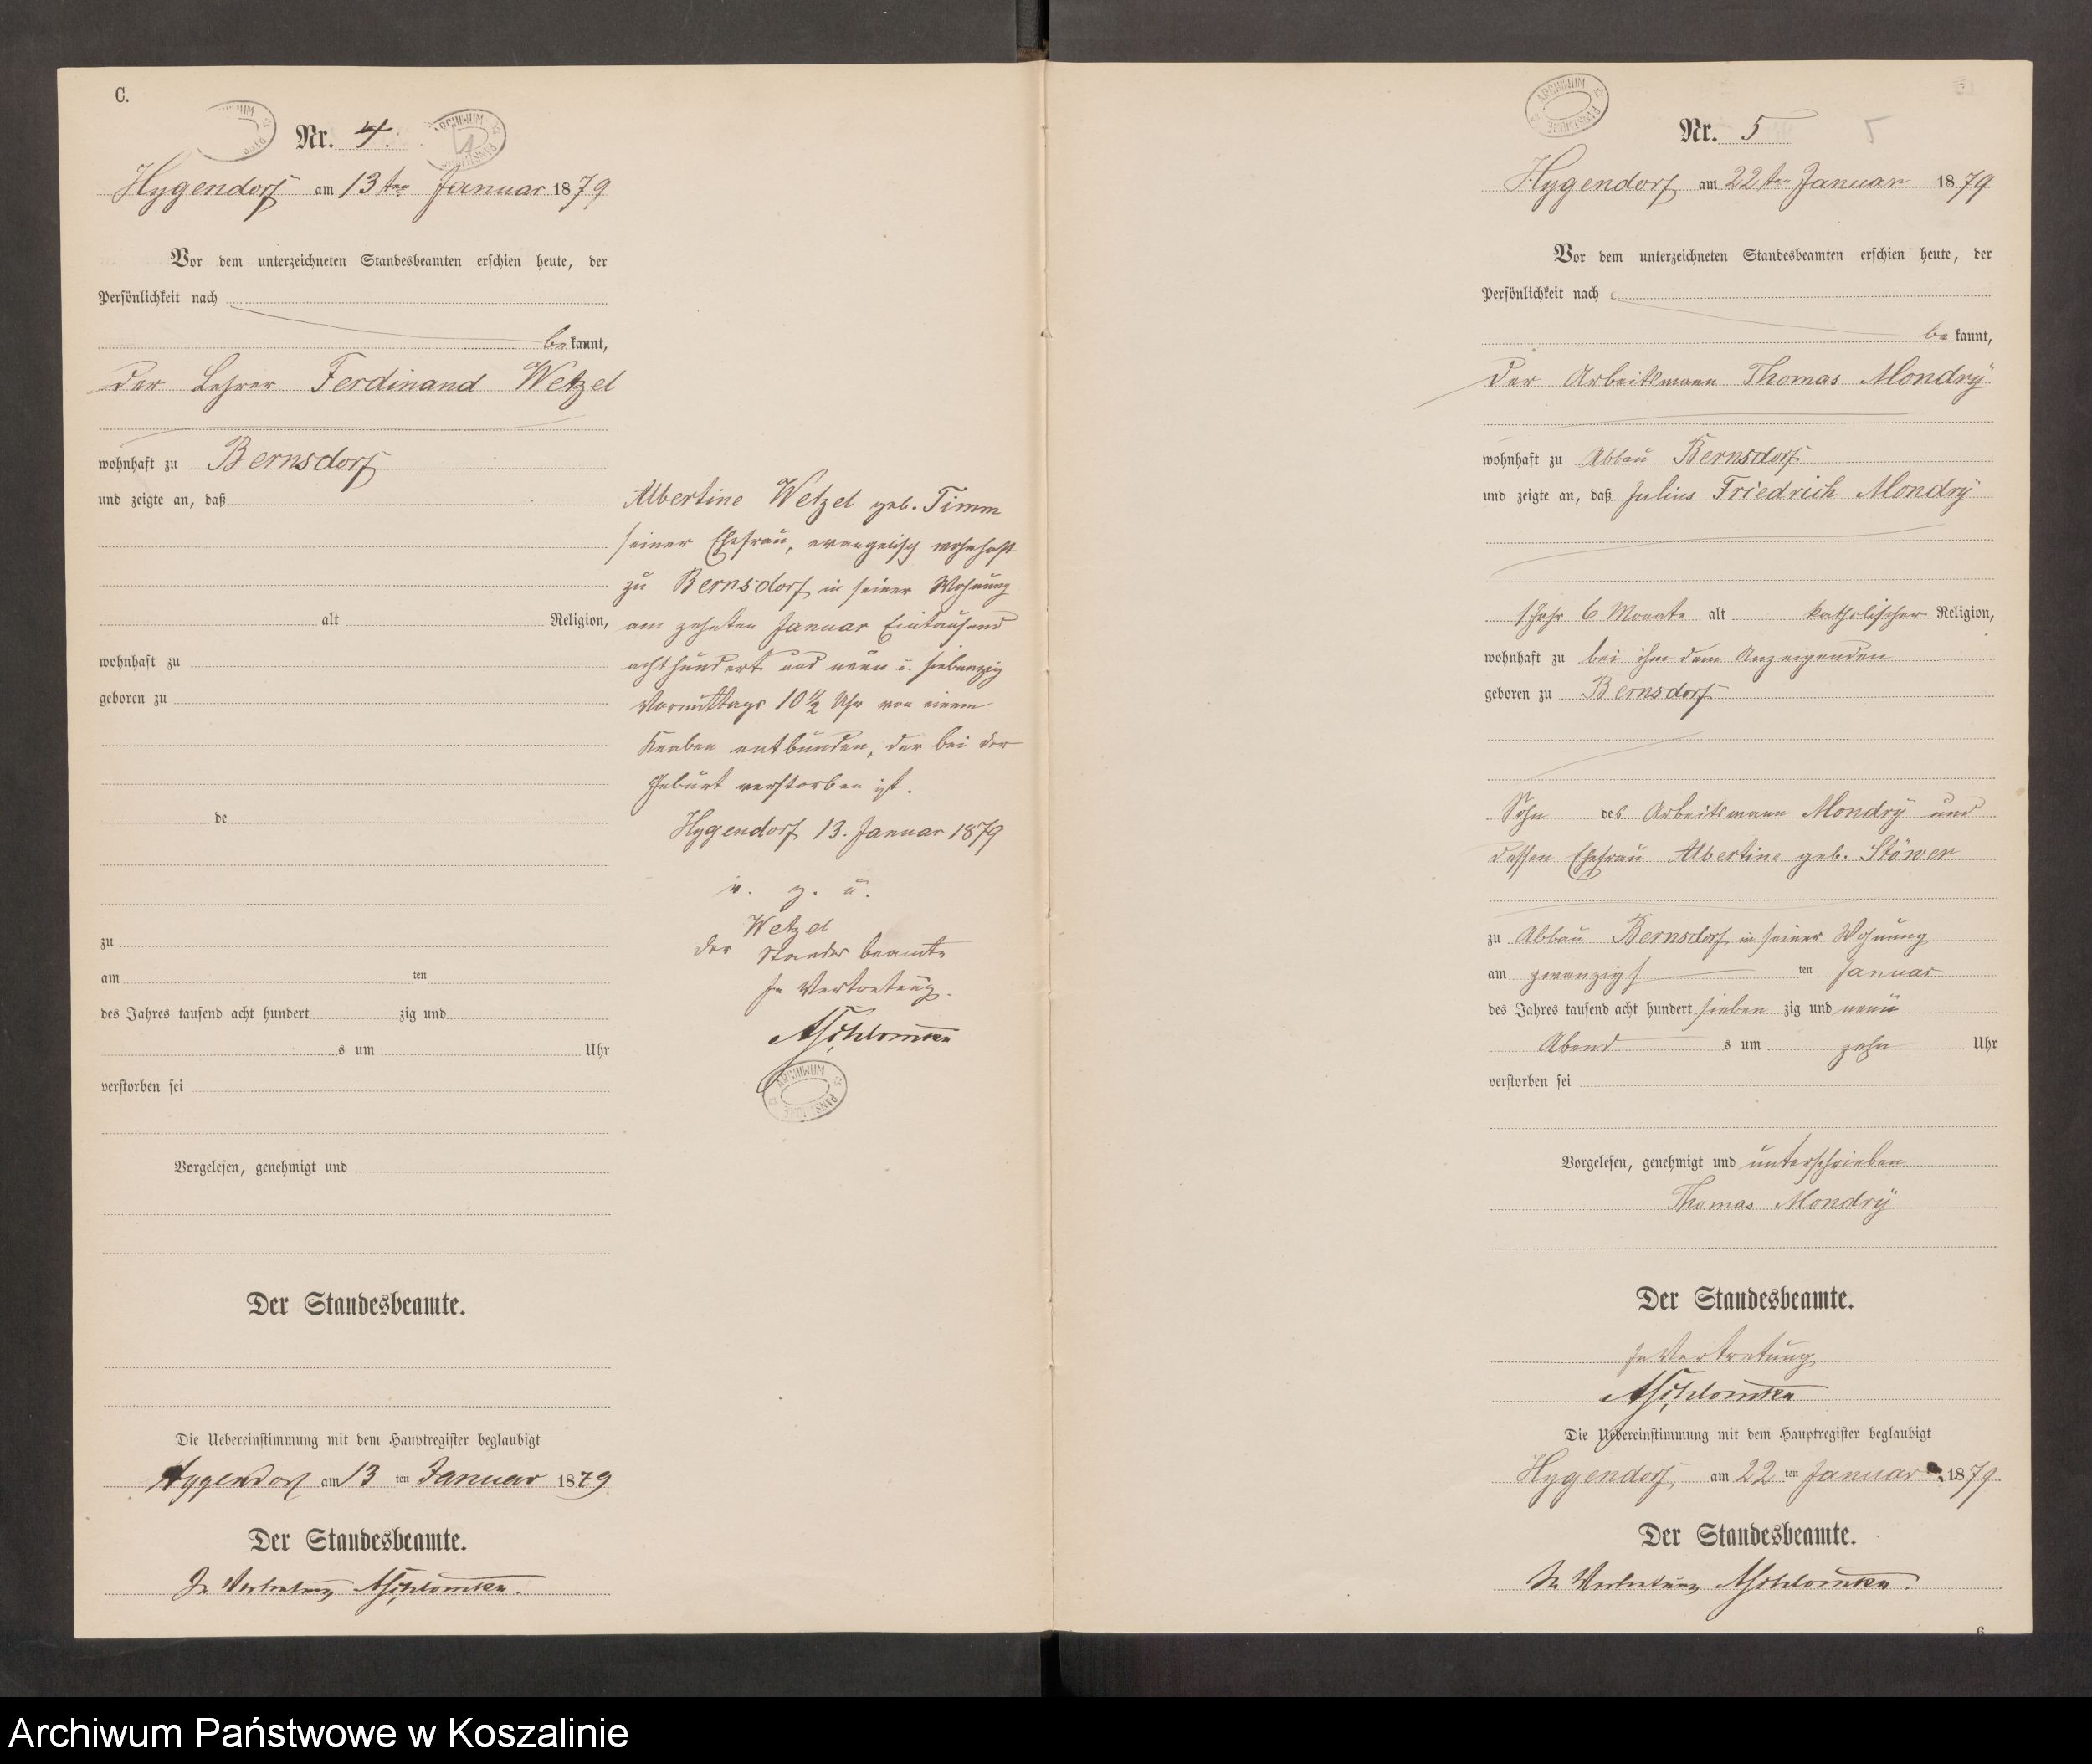 C.
Nr. 4.
Hygendorf am 13ten Januar 1879
Vor dem unterzeichneten Standesbeamten erschien heute, der
Persönlichkeit nach
bekannt,
der Lehrer Ferdinand Wetzel
wohnhaft zu Bernsdorf
und zeigte an, daß
alt Religion,
wohnhaft zu
geboren zu
de
zu
am ten
des Jahres tausend acht hundert zig und
s um Uhr
verstorben sei
Vorgelesen, genehmigt und
Der Standesbeamte.
Die Uebereinstimmung mit dem Hauptregister beglaubigt
Hygendorf am 13 ten Januar 1879
Der Standesbeamte.
In Vertretung
Albertine Wetzel geb. Timm
seiner Ehefrau, evangelisch wohnhaft
zu Bernsdorf in seiner Wohnung
am zehnten Januar Eintausend
achthundert und neun u. siebenzig
Vormittags 10 1/2 Uhr von einem
Knaben entbunden, der bei der
Geburt verstorben ist.
Hygendorf 13. Januar 1879
v. g. u.
Wetzel
der Standesbeamte
In Vertretung.
ARCHIWUM
Nr. 5
5
Hygendorf am 22ten Januar 1879
Vor dem unterzeichneten Standesbeamten erschien heute, der
Persönlichkeit nach
bekannt,
der Arbeitsmann Thomas Mondrÿ
wohnhaft zu Abbau Bernsdorf
und zeigte an, daß Julius Friedrich Mondrÿ
1 Jahr 6 Monate alt katholischer Religion,
wohnhaft zu bei ihm dem Anzeigenden
geboren zu Bernsdorf
Sohn des Arbeitsmann Mondrÿ und
dessen Ehefrau Albertine geb. Stöwer
zu Abbau Bernsdorf in seiner Wohnung
am zwanzigs ten Januar
des Jahres tausend acht hundert sieben zig und neun
Abend s um zehn Uhr
verstorben sei
Vorgelesen, genehmigt und unterschrieben
Thomas Mondrÿ
Der Standesbeamte.
In Vertretung
Die Uebereinstimmung mit dem Hauptregister beglaubigt
Hygendorf am 22 ten Januar 1879
Der Standesbeamte.
In Vertretung
6
Archiwum Państwowe w Koszalinie